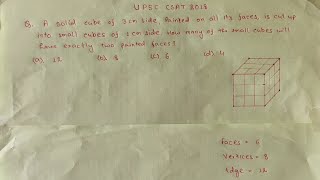 UPSC CSAT 2018
Q. A solid cube of 3cm side, Painted on all its faces, is cut up
into small cubes of 1cm side. How many of the small cubes will
have exactly two painted faces?
(a) 12 (b) 8 (c) 6 (d) 4
faces = 6
Vertices = 8
Edge = 12